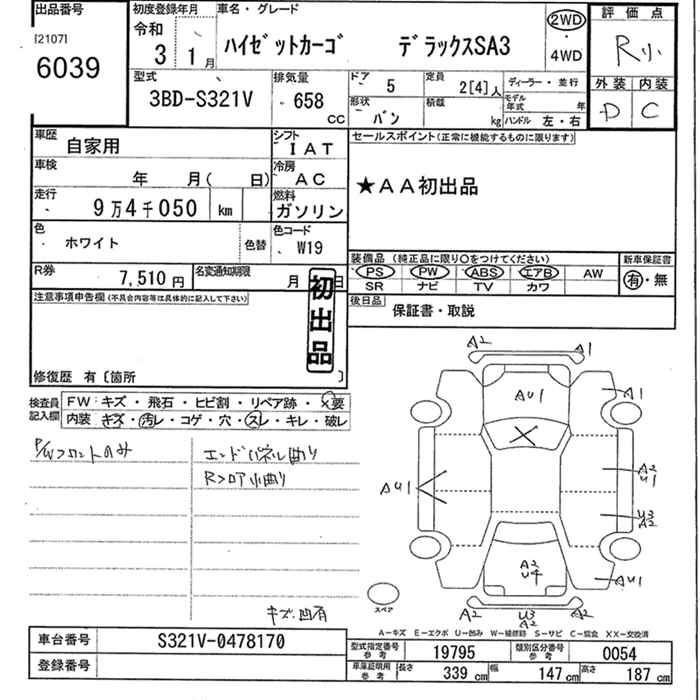 出品番号
[2107]
6039
初度登録年月
令和
3年 1月
車名・グレード
ハイゼットカーゴ デラックスSA3
2WD
4WD
評価点
R小
外装 内装
D C
型式
3BD-S321V
排気量
658 CC
ドア 5
定員 2[4]人
ディーラー・並行
形状 バン
積載 kg
モデル年式 年
ハンドル 左・右
車歴 自家用
シフト IAT
セールスポイント(正常に機能するものに限ります)
★AA初出品
車検 年 月( 日)
冷房 AC
走行 9万4千050 km
燃料 ガソリン
色 ホワイト
色替
色コード W19
装備品 (純正品に限り○をつけてください)
新車保証書
PS PW ABS エアB AW
SR ナビ TV カワ
有・無
R券 7,510円
名変通知期限 月 日
後日品 保証書・取説
初出品
注意事項申告欄(不具合内容等は具体的に記入して下さい)
修復歴 有〔箇所 〕
検査員記入欄
FW キズ・飛石・ヒビ割・リペア跡・×要
内装 キズ・汚レ・コゲ・穴・スレ・キレ・ムレ
P/Wフロントのみ
エンドパネル曲り
Rフロア小曲り
キズ・凹有
A2
A1
AU1
A1
AU1
A2
U1
U3
A2
A2
U4
AU1
A2
U3
A2
A2
スペア
A-キズ E-エクボ U-凹み W-補修跡 S-サビ C-腐食 XX-交換済
車台番号 S321V-0478170
登録番号
型式指定番号 参考 19795
類別区分番号 参考 0054
車庫証明用 参考 長さ 339 cm 幅 147 cm 高さ 187 cm